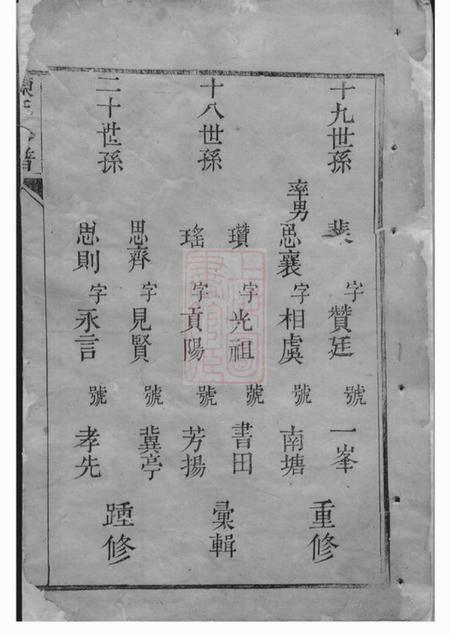 十九世孫
裴 字 贊廷 號 一峯
率男 思襄 字 相虞 號 南塘
重修
十八世孫
瓚 字 光祖 號 書田
瑤 字 貢陽 號 芳揚
彙輯
二十世孫
思齊 字 見賢 號 冀亭
思則 字 永言 號 孝先
踵修
陳氏 譜